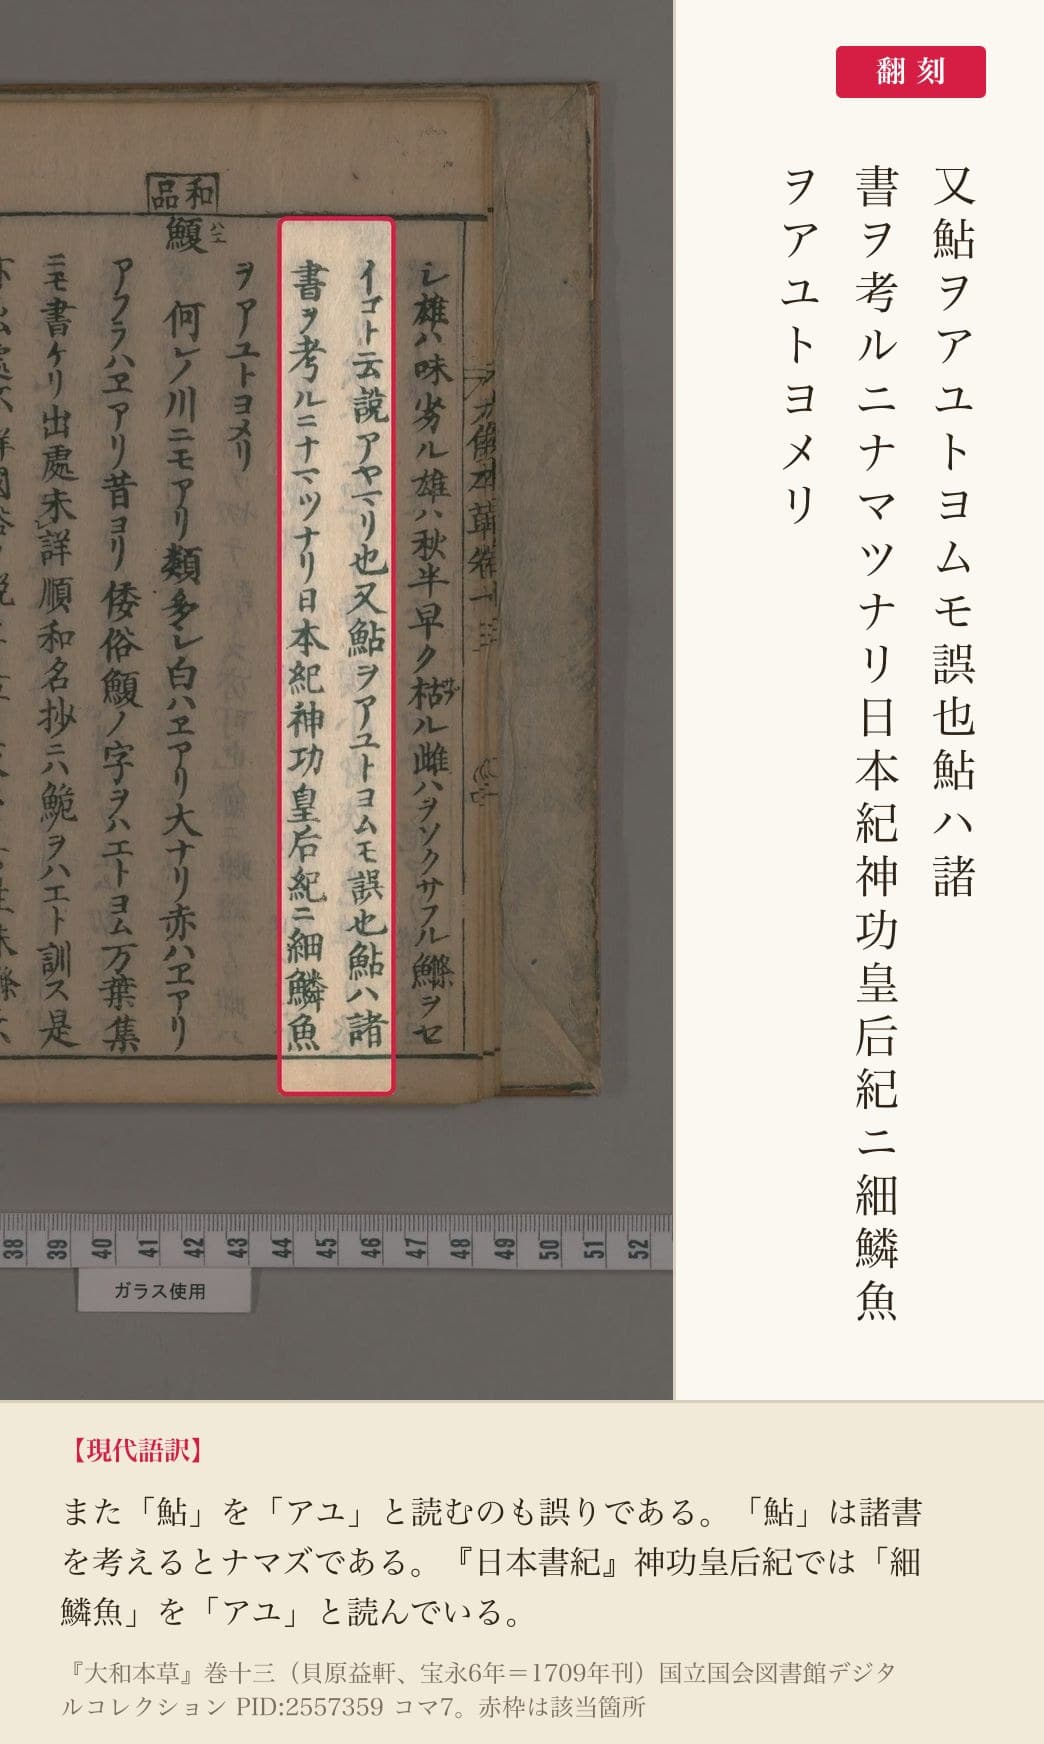 翻刻
又鮎ヲアユトヨムモ誤也鮎ハ諸
書ヲ考ルニナマツナリ日本紀神功皇后紀ニ細鱗魚
ヲアユトヨメリ
大倭本草卷十三
レ雄ハ味劣ル雄ハ秋半早ク枯ル雌ハヲソクサフル鰷ヲセ
イゴト云說アヤマリ也又鮎ヲアユトヨムモ誤也鮎ハ諸
書ヲ考ルニナマツナリ日本紀神功皇后紀ニ細鱗魚
ヲアユトヨメリ
和品
鰁
何レノ川ニモアリ類多レ白ハヱアリ大ナリ赤ハヱアリ
アフラハヱアリ昔ヨリ倭俗鰁ノ字ヲハエトヨム万葉集
ニモ書ケリ出處未詳順和名抄ニハ鮠ヲハエト訓ス是
38 39 40 41 42 43 44 45 46 47 48 49 50 51 52
ガラス使用
【現代語訳】
また「鮎」を「アユ」と読むのも誤りである。「鮎」は諸書
を考えるとナマズである。『日本書紀』神功皇后紀では「細
鱗魚」を「アユ」と読んでいる。
『大和本草』巻十三（貝原益軒、宝永6年＝1709年刊）国立国会図書館デジタ
ルコレクション PID:2557359 コマ7。赤枠は該当箇所